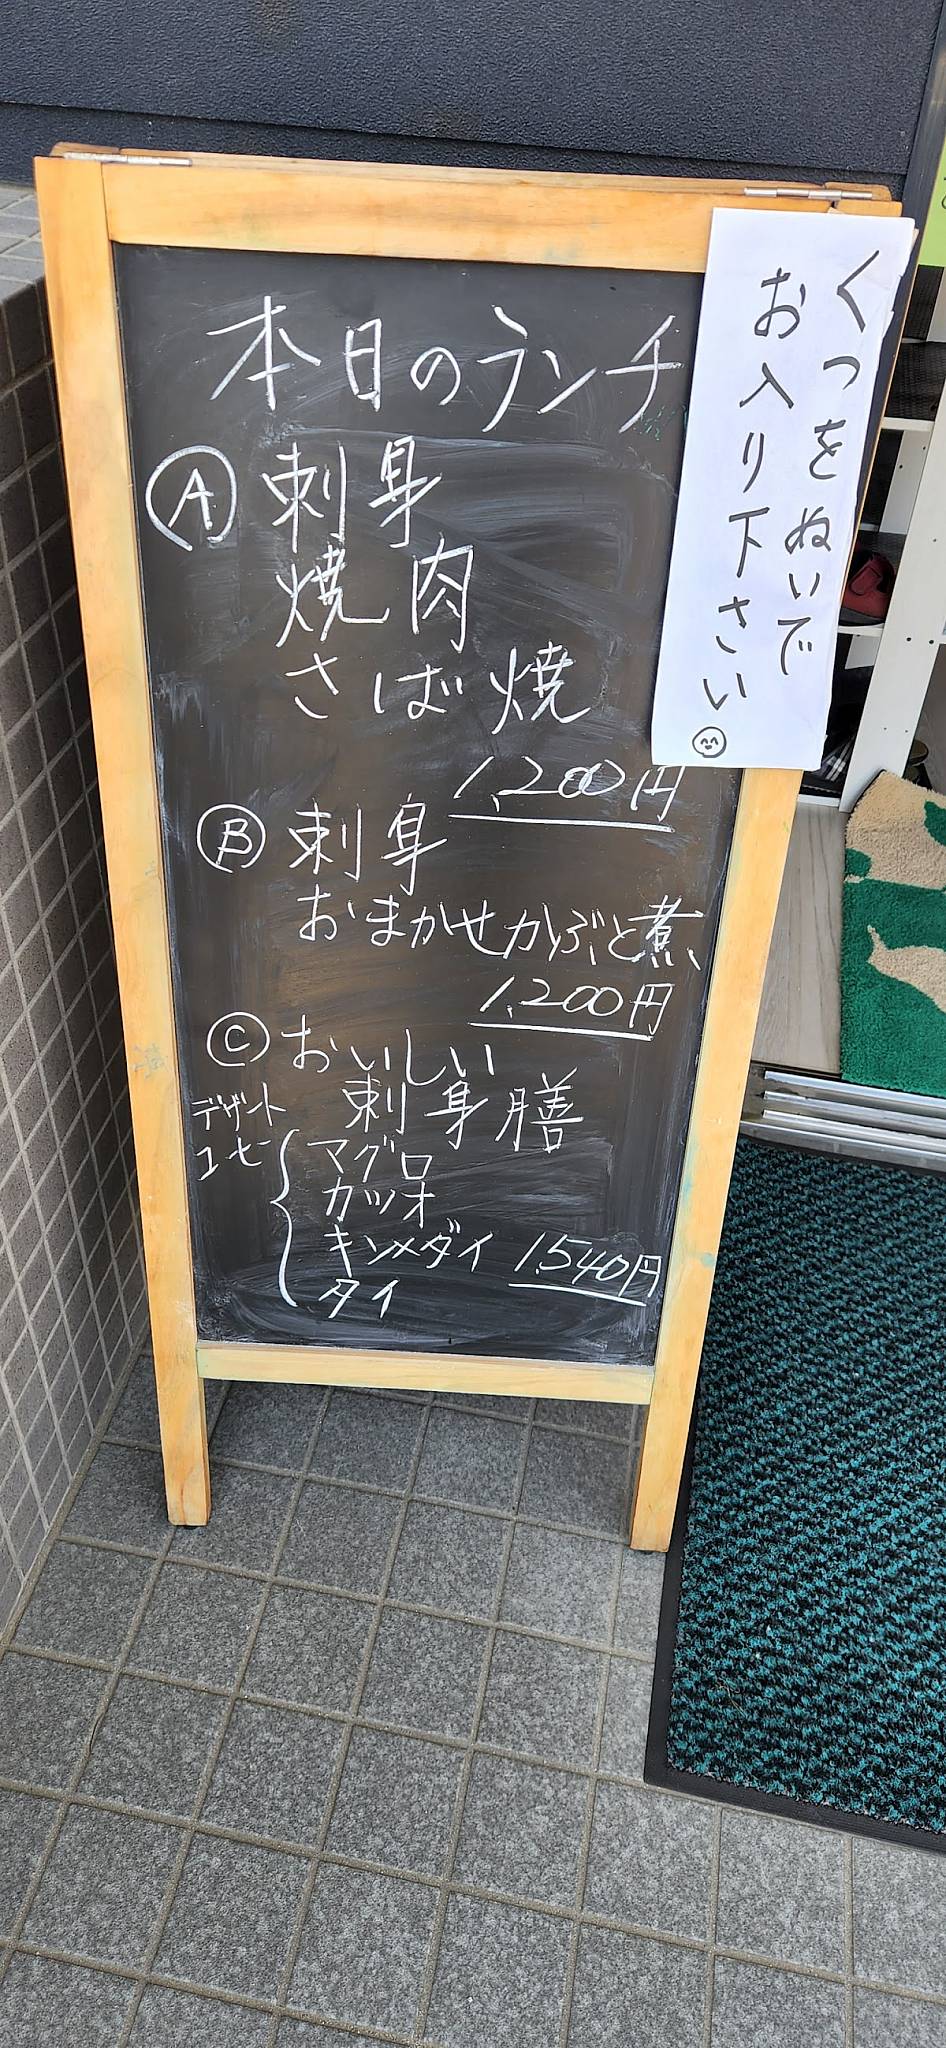 本日のランチ
Ⓐ 刺身
焼肉
さば焼
1,200円
Ⓑ 刺身
おまかせかぶと煮
1,200円
Ⓒ おいしい
刺身膳
デザート
コーヒー
マグロ
カツオ
キンメダイ 1,540円
タイ
くつをぬいで
お入り下さい